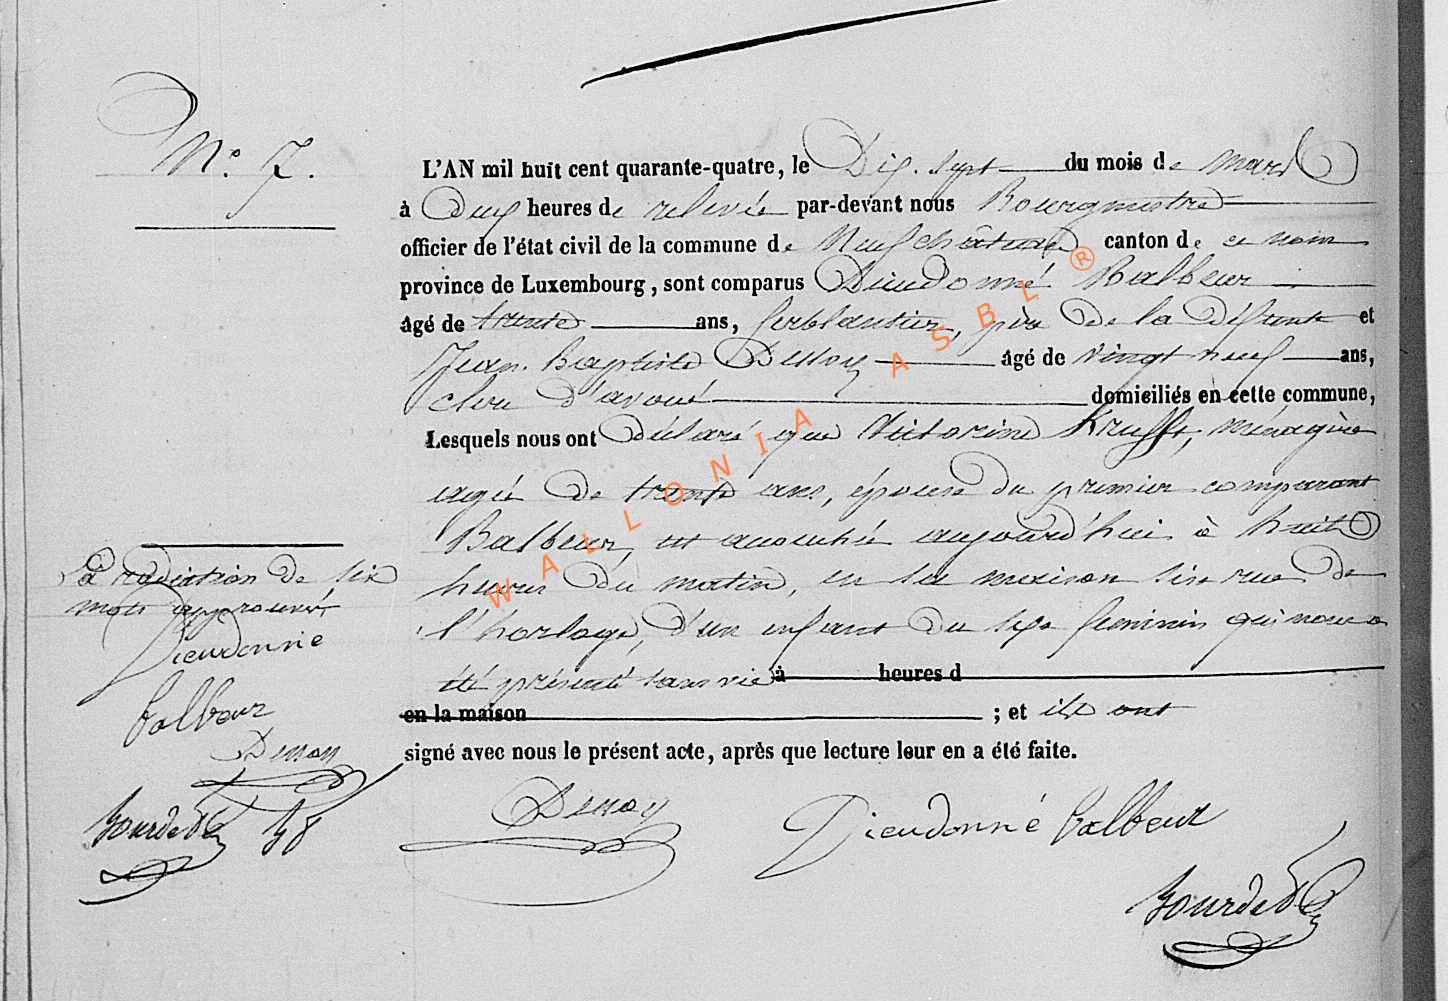 N.º 7.
L'AN mil huit cent quarante-quatre, le Dix-sept du mois de mars
à Deux heures de relevée par-devant nous Bourgmestre
officier de l'état civil de la commune de Neufchâteau canton de ce nom
province de Luxembourg, sont comparus Dieudonné Balbeur
âgé de trente ans, ferblantier, père de la défunte et
Jean-Baptiste âgé de vingt neuf ans,
clerc d'avoué domiciliés en cette commune,
Lesquels nous ont déclaré que Victorine Krufft, ménagère
agée de trente ans, épouse du premier comparant
Balbeur, est accouchée aujourd'hui à huit
heures du matin, en sa maison sise rue de
l'horloge, d'un enfant du sexe féminin qui nous a
été présenté sans vie à heures d
en la maison ; et ils ont
signé avec nous le présent acte, après que lecture leur en a été faite.
La radiation de six
mots approuvée
Dieudonné
Balbeur
Dieudonné Balbeur
WALLONIA ASBL ®